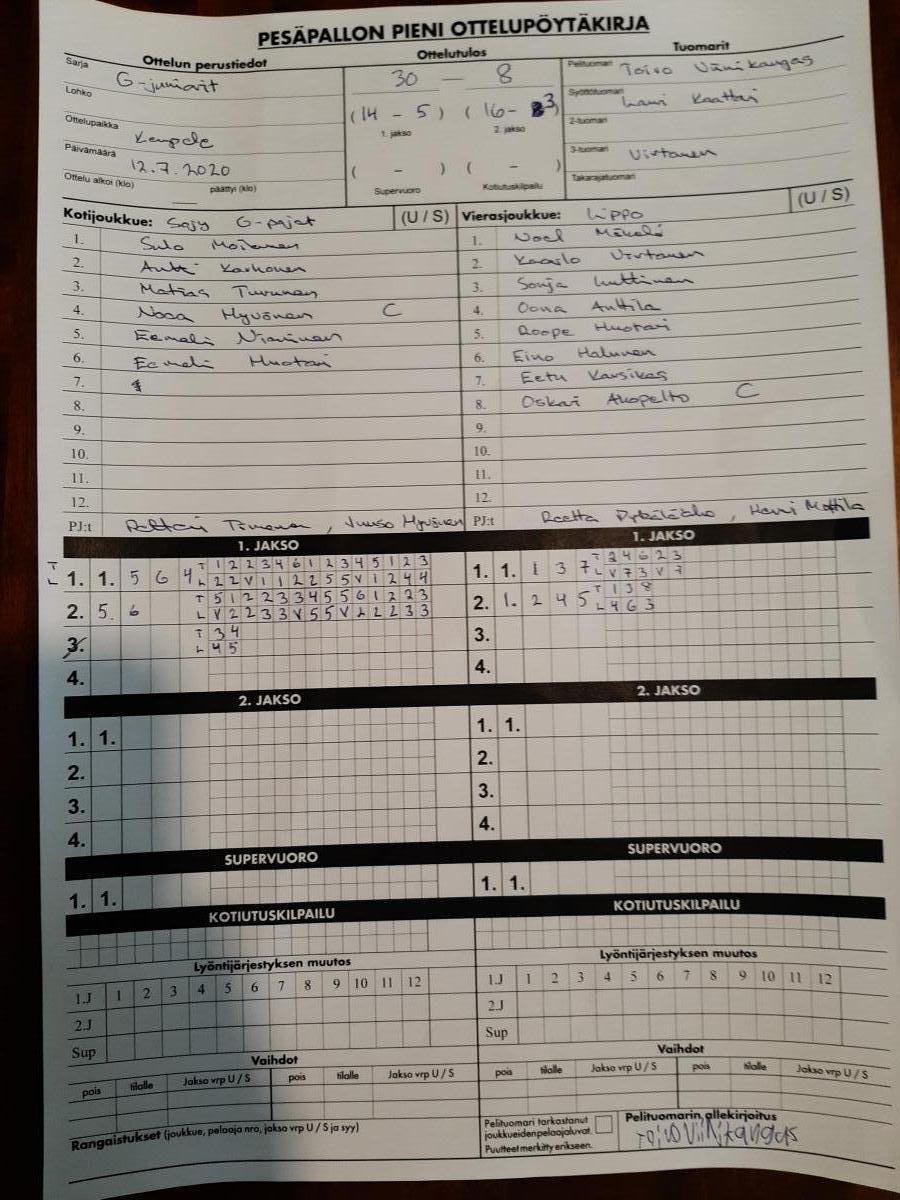 PESÄPALLON PIENI OTTELUPÖYTÄKIRJA
Ottelun perustiedot
Sarja G-juniorit
Lohko
Ottelupaikka Kempele
Päivämäärä 12.7.2020
Ottelu alkoi (klo) päättyi (klo)
Ottelutulos
30 - 8
(14 - 5) (16 - 3)
1. jakso 2. jakso
( - ) ( - )
Supervuoro Kotiutuskilpailu
Tuomarit
Pelituomari Toivo Viinikangas
Syöttötuomari Lauri Kaattari
2-tuomari
3-tuomari Virtanen
Takarajatuomari
Kotijoukkue: Sajy G-pajat (U / S)
1. Sulo Moilanen
2. Antti Karhonen
3. Matias Turunen
4. Nooa Hyvönen C
5. Eemeli Niminen
6. Eemeli Huotari
7.
8.
9.
10.
11.
12.
PJ:t Timonen, Juuso Hyvönen
Vierasjoukkue: Lippo (U / S)
1. Noel Mäkelä
2. Kaarlo Virtanen
3. Sonja Luttinen
4. Oona Anttila
5. Roope Huotari
6. Eino Halunen
7. Eetu Karsikas
8. Oskari Alapelto C
9.
10.
11.
12.
PJ:t Reetta , Harri Mattila
1. JAKSO
T 1 2 2 3 4 6 1 2 3 4 5 1 2 3
1. 1. 5 6 4 L 2 2 V 1 1 2 2 5 5 V 1 2 4 4
T 5 1 2 2 3 3 4 5 5 6 1 2 2 3
2. 5. 6 L V 2 2 3 3 V 5 5 V 2 2 2 3 3
T 3 4
3. L 4 5
4.
1. JAKSO
T 2 4 6 2 3
1. 1. 1 3 7 L V 7 3 V 7
T 1 3 8
2. 1. 2 4 5 L 4 6 3
3.
4.
2. JAKSO
1. 1.
2.
3.
4.
2. JAKSO
1. 1.
2.
3.
4.
SUPERVUORO
1. 1.
SUPERVUORO
1. 1.
KOTIUTUSKILPAILU
KOTIUTUSKILPAILU
Lyöntijärjestyksen muutos
1.J 1 2 3 4 5 6 7 8 9 10 11 12
2.J
Sup
Lyöntijärjestyksen muutos
1.J 1 2 3 4 5 6 7 8 9 10 11 12
2.J
Sup
Vaihdot
pois tilalle Jakso vrp U / S pois tilalle Jakso vrp U / S
Vaihdot
pois tilalle Jakso vrp U / S pois tilalle Jakso vrp U / S
Rangaistukset (joukkue, pelaaja nro, jakso vrp U / S ja syy)
Pelituomari tarkastanut
joukkueidenpelaajaluvat.
Puutteet merkitty erikseen.
Pelituomarin allekirjoitus
Toivo Viinikangas